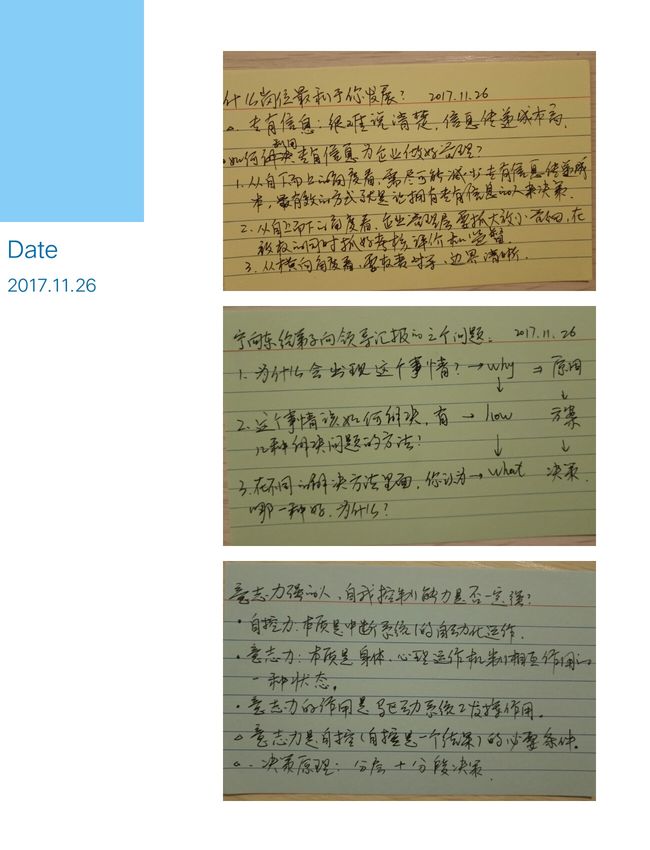 Date
2017.11.26
什么岗位最利于你发展? 2017.11.26
专有信息:很难说清楚,信息传递成本高.
利用
如何解决专有信息为企业做好管理?
1. 从自下而上的角度看,需尽可能减少专有信息传递成
本,最有效的方式就是让拥有专有信息的人来决策.
2. 从自上而下的角度看,企业管理层要抓大放小,在
放权的同时抓好考核评价和监督.
3. 从横向角度看,要权责对等、边界清晰.
宁向东给弟子向领导汇报的三个问题: 2017.11.26
1. 为什么会出现这个事情? → why ⇒ 原因
2. 这个事情该如何解决,有 → how 方案
几种解决问题的方法?
3. 在不同的解决方法里面,你认为 → what 决策
哪一种好,为什么?
意志力强的人,自我控制能力是否一定强?
· 自控力:本质是中断系统1的自动化运作.
· 意志力:本质是身体、心理运作机制相互作用的
一种状态。
· 意志力的作用是驱动系统2发挥作用。
意志力是自控(自控是一个结果)的必要条件。
决策原理:分层+分段决策.